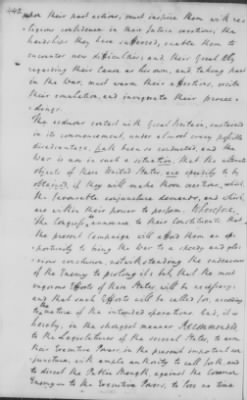 442
upon their past actions, must inspire them with re-
ligious confidence in their future exertions; the
hardships they have suffered, enable them to
encounter new difficulties; and their Great Ally
regarding their Cause as his own, and taking part
in the War, must warm their affections, excite
their emulation, and invigorate their procee-
dings.
The arduous contest with Great Britain, sustained
in its commencement, under almost every possible
disadvantage, hath been so conducted, and the
War is now in such a situation, that the ultimate
objects of these United States, are speedily to be
obtained, if they will make those exertions, which
the favorable conjuncture demands, and which
are within their power to perform. Wherefore,
the Congress, announce to their Constituents that
the present Campaign will afford them an op-
portunity to bring the War to a speedy and glo-
rious conclusion, notwithstanding the endeavours
of the Enemy to prolong it; but that the most
vigorous Efforts of these States, will be necessary;
and that such Efforts will be called for, according
to the nature of the intended operations. And, it is
hereby, in the strongest manner Recommended
to the Legislatures of the several States, to arm
their Executive Powers, in the present important con-
juncture, with ample authority to call forth, and
to direct the Public Strength, against the Common
Enemy; and to the Executive Powers, to lose no time